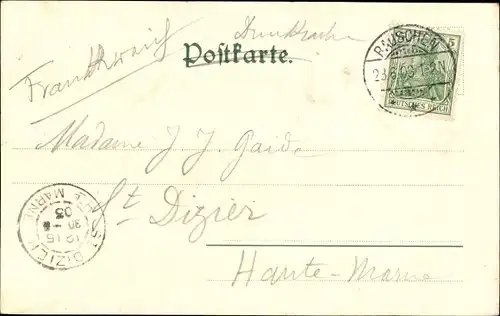 Frankreich
Drucksache
Postkarte.
RAUSCHEN
5
DEUTSCHES REICH
Madame J. J. Gaide
St Dizier
Haute-Marne
ST DIZIER
12 15
03
HTE MARNE